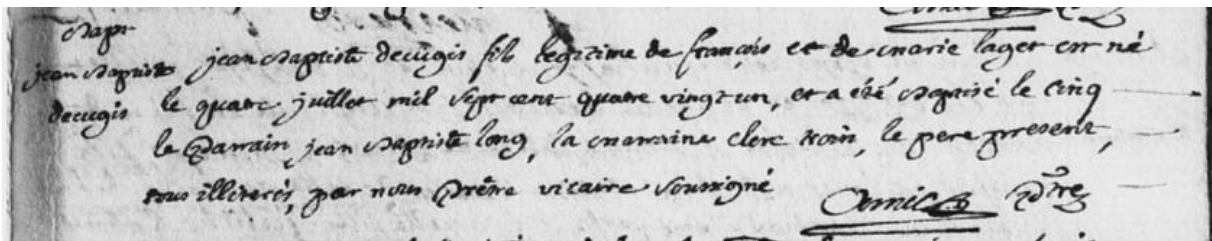 Bapt
jean baptiste
decugis
jean baptiste decugis fils legitime de françois et de marie laget est né
le quatre juillet mil sept cent quatre vingt un, et a été baptisé le cinq
le parrain jean baptiste long, la marraine claire, le pere present,
tous illiterés, par nous prêtre vicaire soussigné
Amic ptre